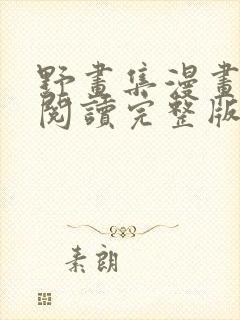 野畫集漫畫
閱讀完整版
素朗